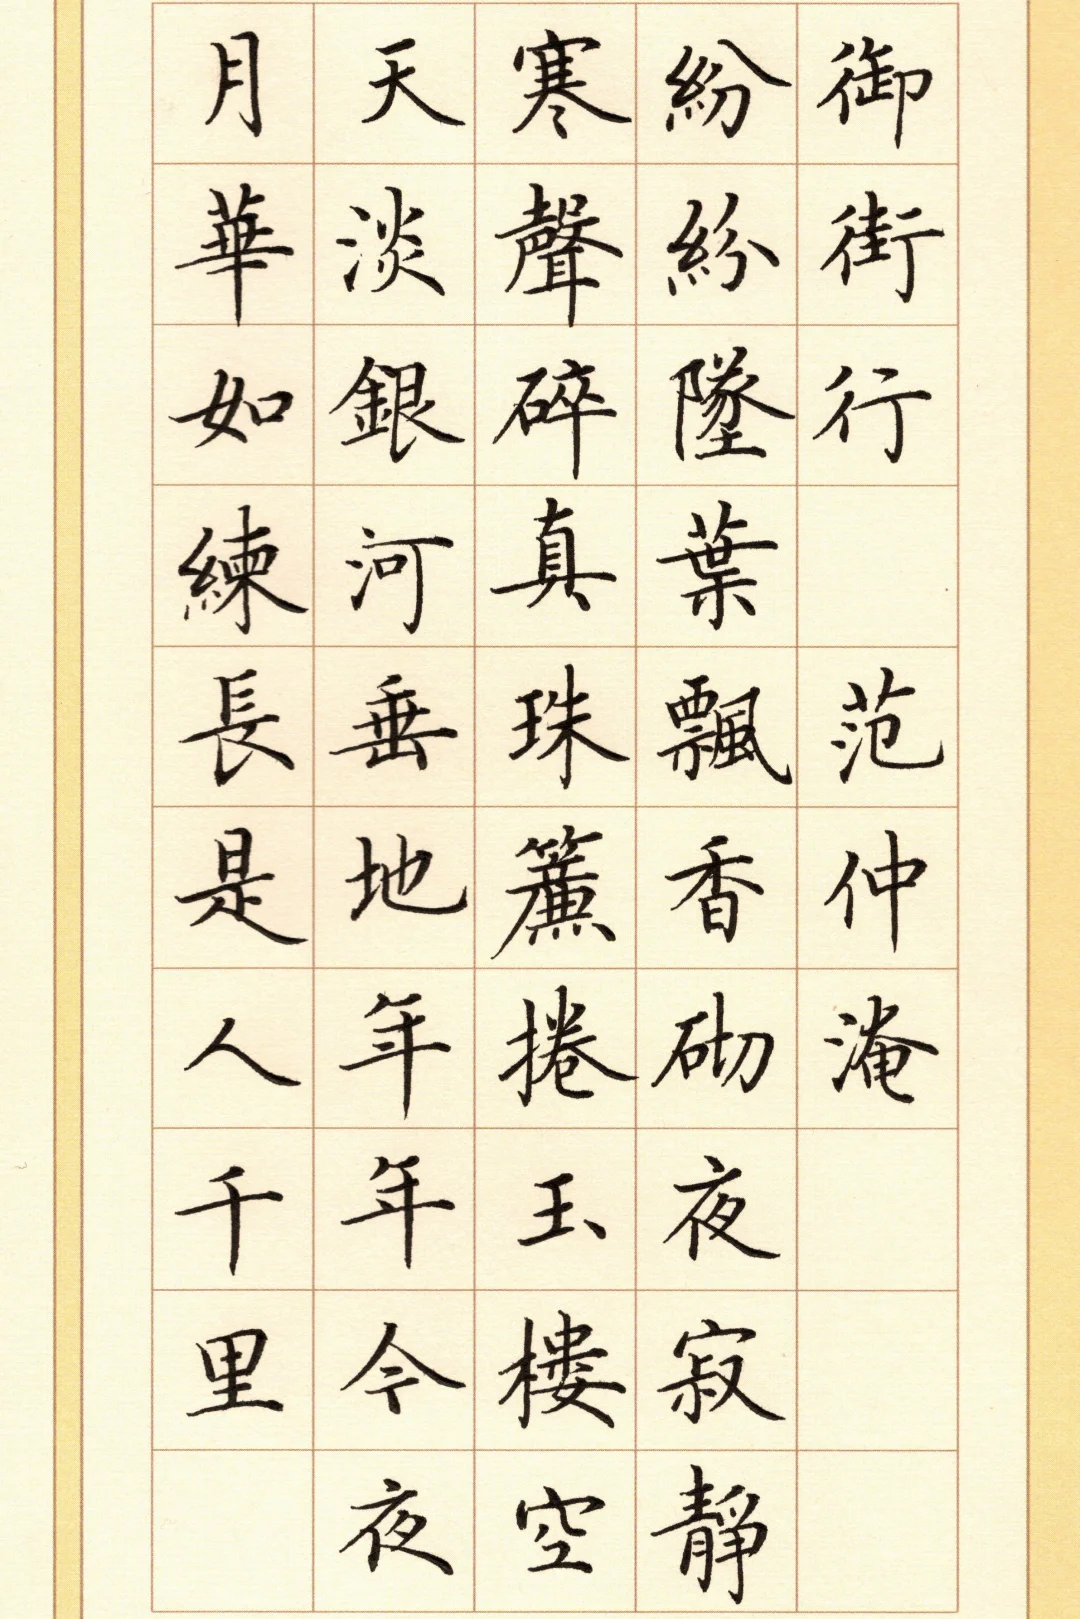 御街行 范仲淹
紛紛墜葉飄香砌夜寂靜
寒聲碎真珠簾捲玉樓空
天淡銀河垂地年年今夜
月華如練長是人千里